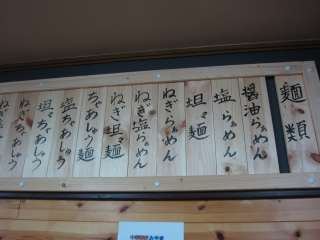 麺類
醤油らぁめん
塩らぁめん
坦々麺
ねぎらぁめん
ねぎ塩らぁめん
ねぎ坦々麺
ちゃあしゅう麺
塩ちゃあしゅう
坦々ちゃあしゅう